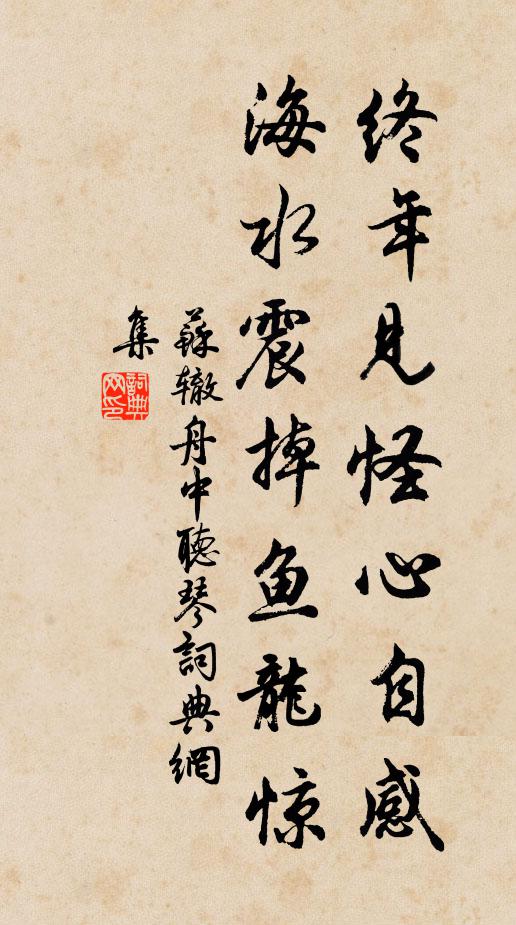 终年见怪心自感
海水震掉鱼龙惊
蘇辙舟中聽琴詞典網
集
詞典
网印